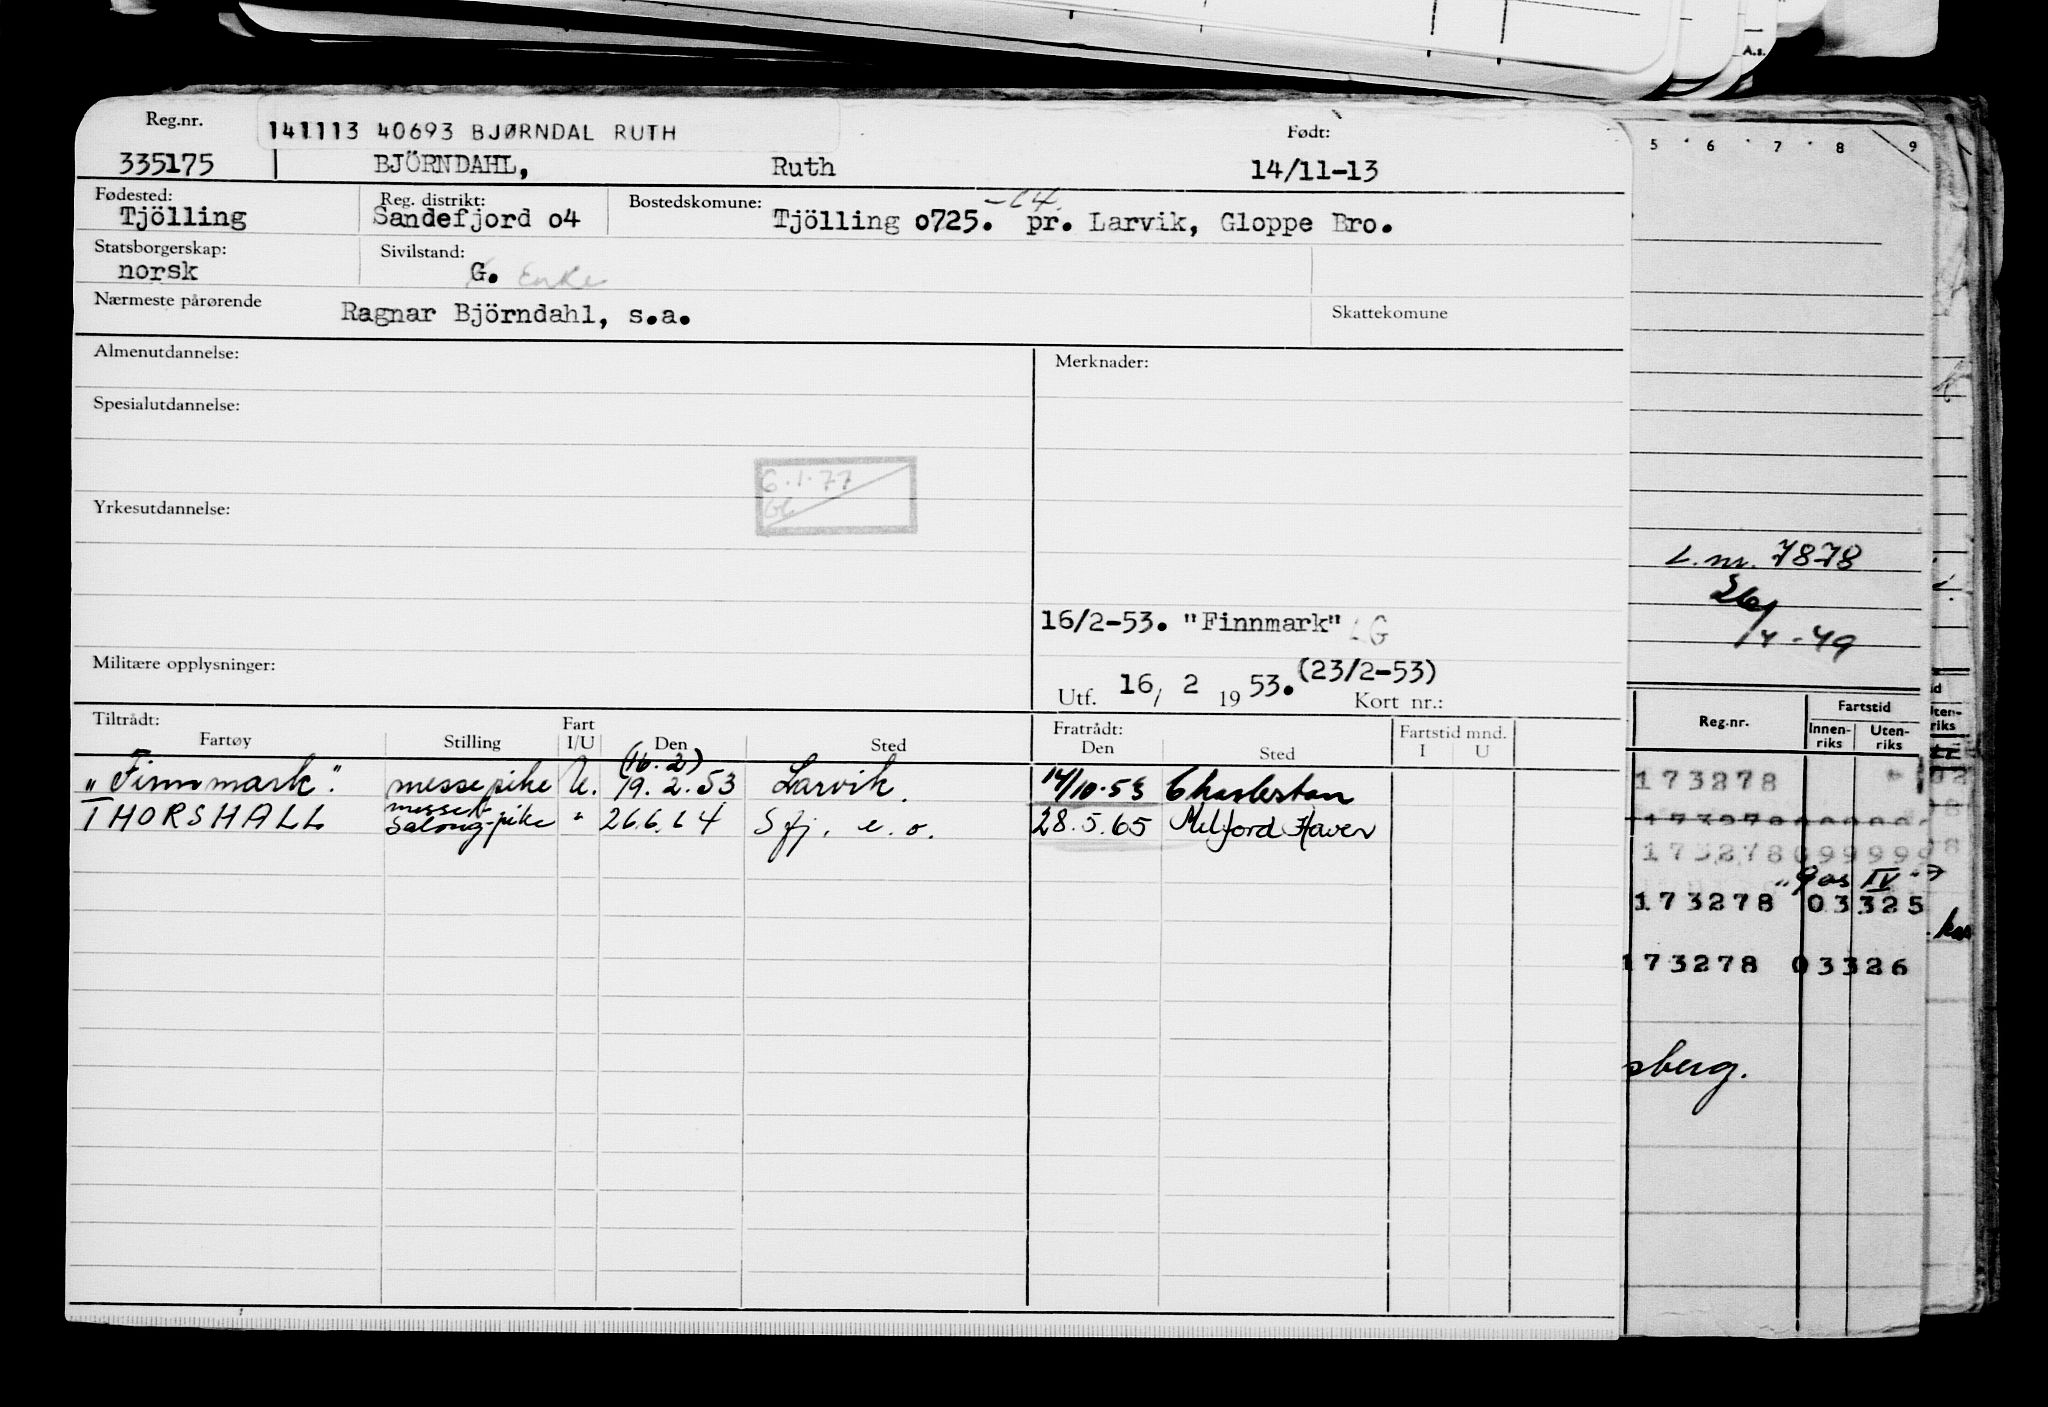 A.s.
Reg.nr. 141113 40693 BJØRNDAL RUTH Født:
335175 BJÖRNDAHL, Ruth 14/11-13
Fødested: Reg. distrikt: Bostedskomune: -64.
Tjölling Sandefjord o4 Tjölling o725. pr. Larvik, Gloppe Bro.
Statsborgerskap: Sivilstand:
norsk G. Enke
Nærmeste pårørende Ragnar Björndahl, s.a. Skattekomune
Almenutdannelse: Merknader:
Spesialutdannelse:
6.1.77
Yrkesutdannelse:
16/2-53. "Finnmark" LG
Militære opplysninger:
(23/2-53)
Utf. 16/ 2 19 53. Kort nr.:
Tiltrådt: Fart Fratrådt: Fartstid mnd.
Fartøy Stilling I/U Den Sted Den Sted I U
(16.2)
"Finnmark". messepike U. 19.2.53 Larvik. 14/10.53 Charlestan
messe&
THORSHALL Salongpike " 26.6.64 Sfj. e.o. 28.5.65 Milford Haven
5 6 7 8 9
L.nr. 7878
Reg.nr. Fartstid
Innen-riks Uten-riks
173278
173278
173278 099999
173278 03325
173278 03326
sberg.